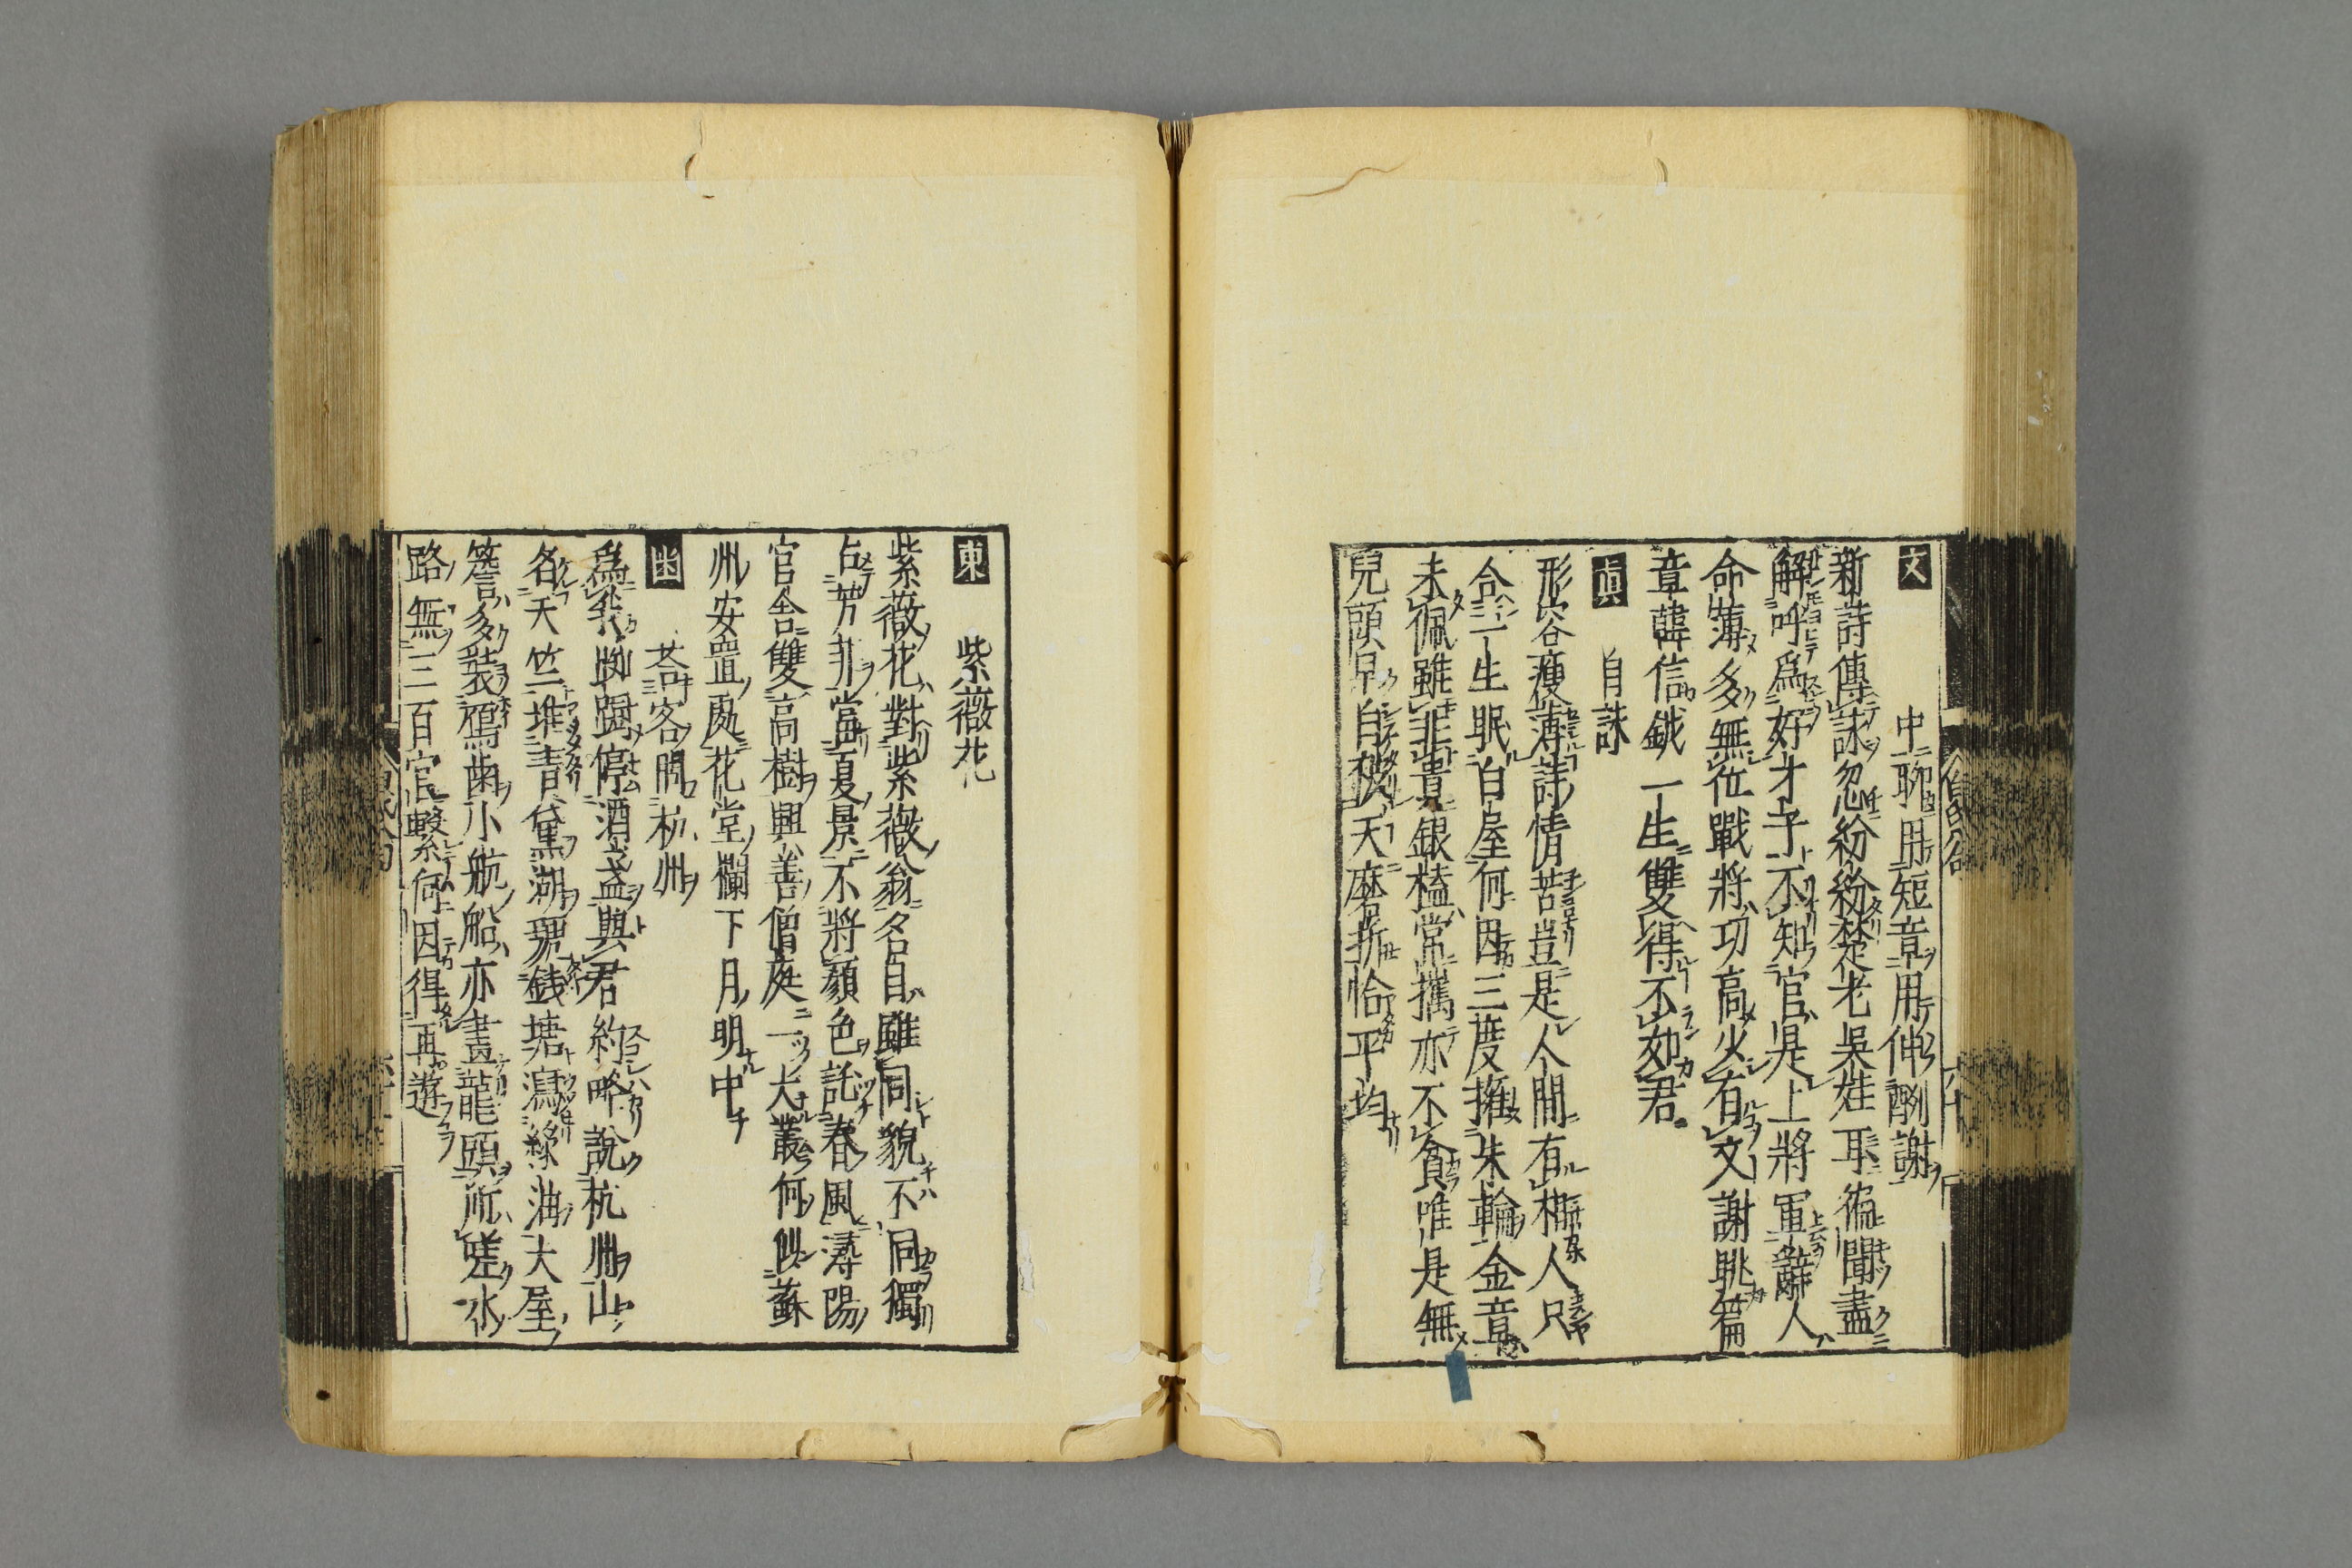 文
中聊用短章用伸酬謝
新詩傳詠忽紛紛楚老吳娃耳徧聞盡
解呼爲好才子不知官是上將軍辭人
命薄多無位戰將功高少有文謝眺篇
章韓信鉞一生雙得不如君
眞
自詠
形容瘦薄詩情苦豈是人間有相人只
合一生眠白屋何因三度擁朱輪金章
未佩雖非貴銀榼常攜亦不貧唯是無
兒頭早白被天磨折恰平均
東
紫薇花
紫薇花對紫薇翁名目雖同貌不同獨
占芳菲當夏景不將顏色託春風潯陽
官舍雙高樹興善僧庭一大叢何似蘇
州安置處花堂欄下月明中
幽
荅客問杭州
爲我踟蹰停酒盞與君約略說杭州山
名天竺堆青黛湖號錢塘瀉綠油大屋
簷多裝鴈齒小航船亦畫龍頭所嗟水
路無三百官繫何因得再遊